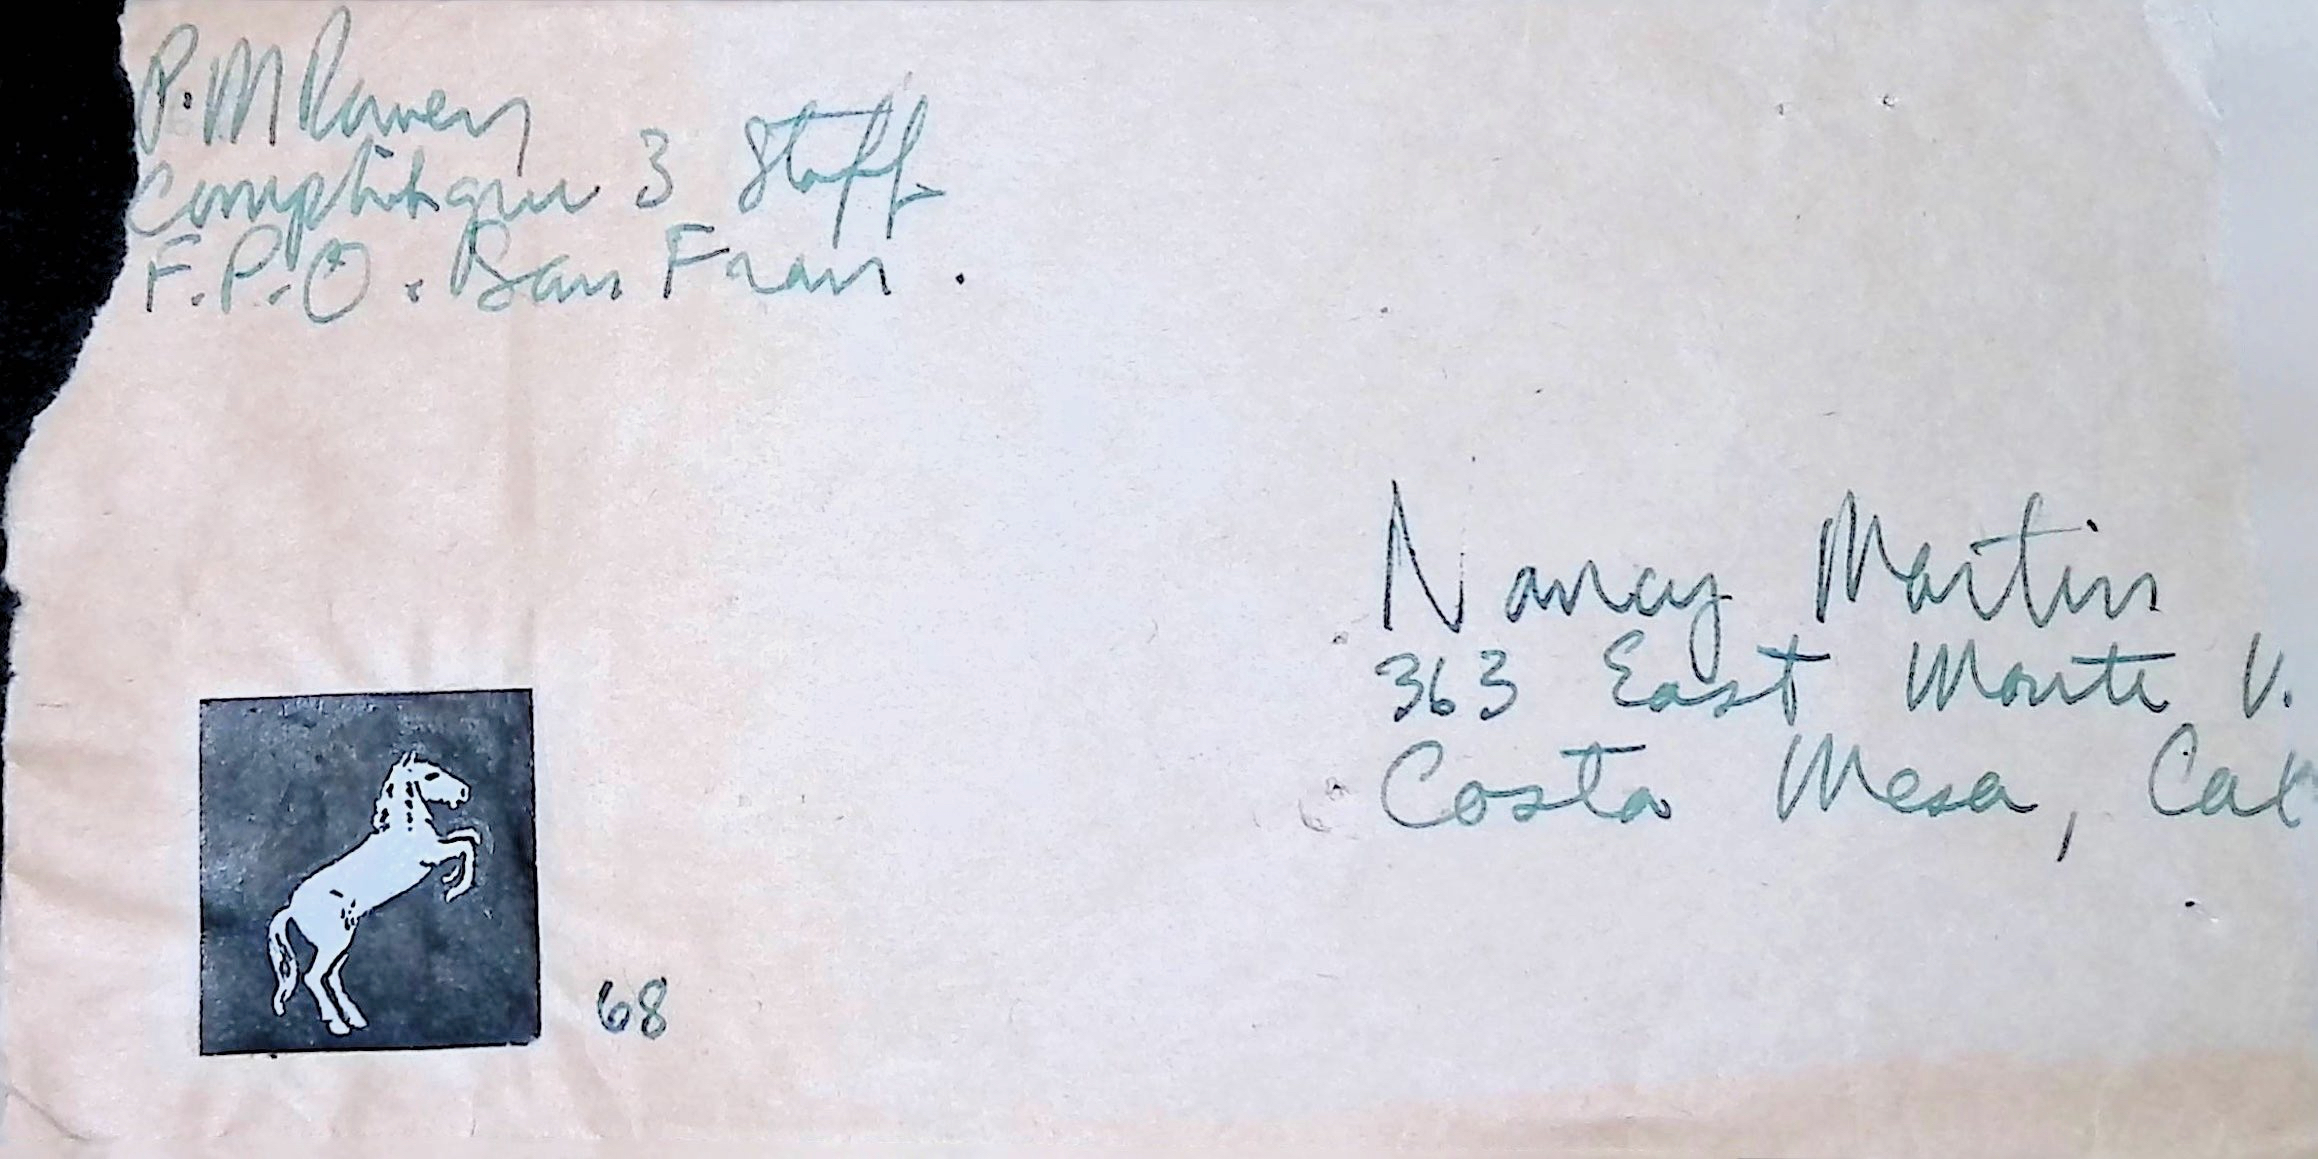 P. M Rowen
3 Staff
F.P.O. San Fran.
Nancy Martin
363 East Monte V.
Costa Mesa, Cal
68